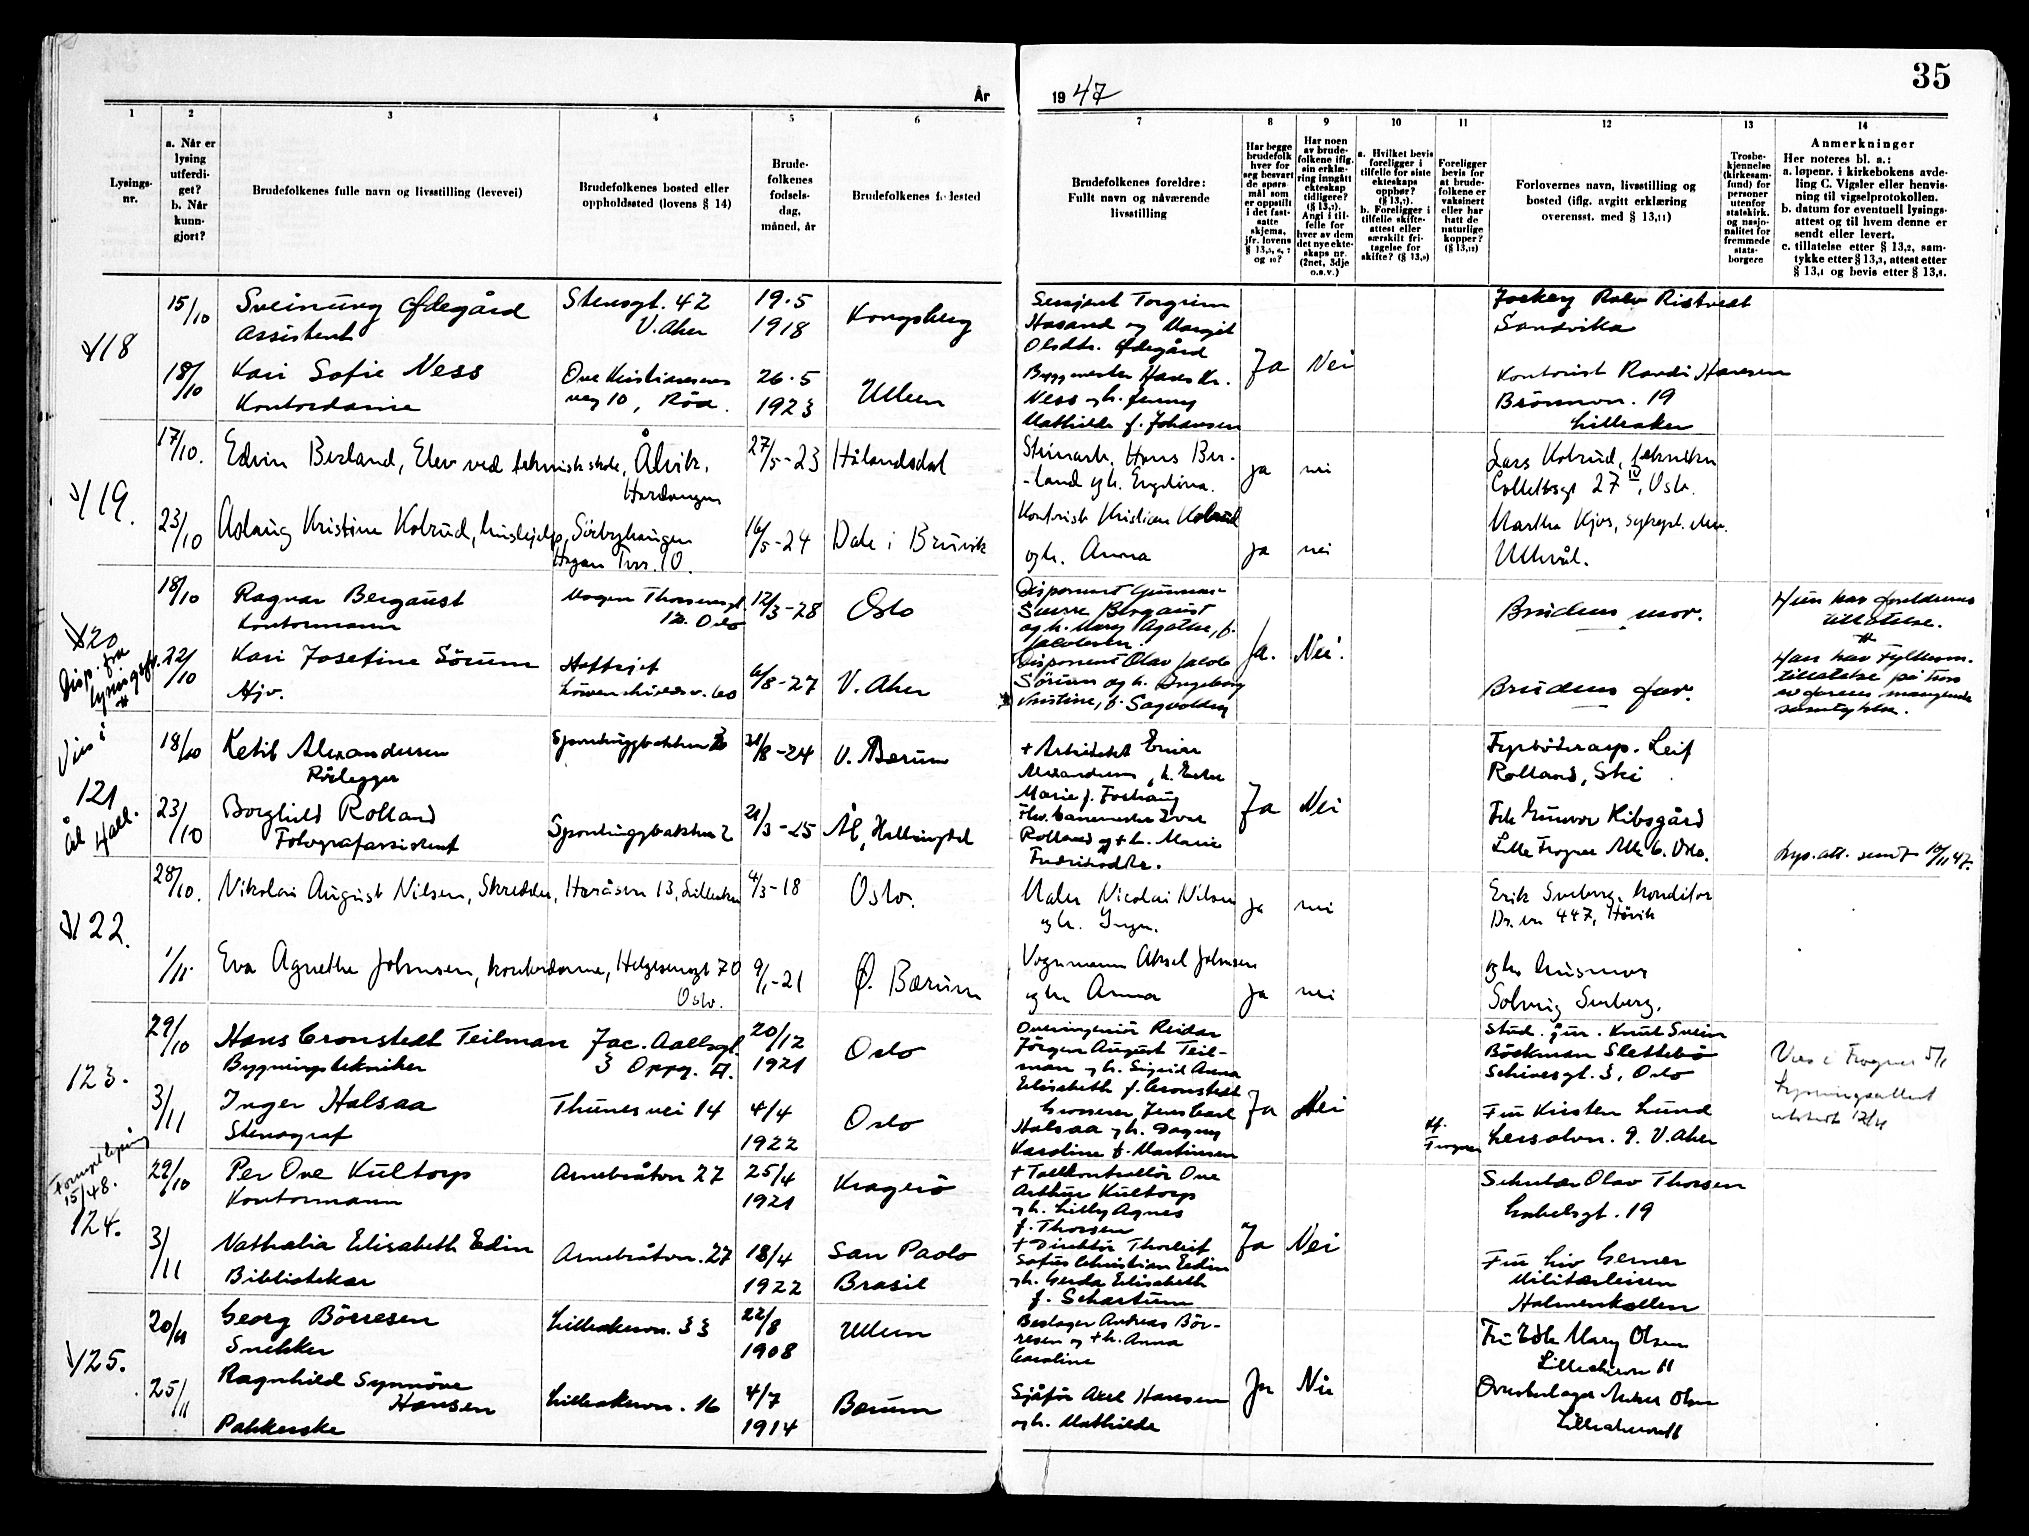 35
År
19 47
1
2
3
4
5
6
7
8
9
10
11
12
13
14
Lysings-
nr.
a. Når er
lysing
utferdi-
get?
b. Når
kunn-
gjort?
Brudefolkenes fulle navn og livsstilling (levevei)
Brudefolkenes bosted eller
oppholdssted (lovens § 14)
Brude-
folkenes
fødsels-
dag,
måned, år
Brudefolkenes fødested
Brudefolkenes foreldre:
Fullt navn og nåværende
livsstilling
Har begge
brudefolk
hver for
seg besvart
de spørs-
mål som
er oppstilt
i det fast-
satte
skjema,
jfr. lovens
og 10?
Har noen
av brude-
folkene iflg.
sin erklæ-
ring inngått
ekteskap
tidligere?
Angi i til-
felle for
hver av dem
det nye ekte-
skaps nr.
(2net, 3dje
o.s.v.)
a. Hvilket bevis
foreligger i
tilfelle for siste
ekteskaps
opphør?
b. Foreligger i
tilfelle skifte-
attest eller
særskilt fri-
tagelse for
skifte?
Foreligger
bevis for
at brude-
folkene er
vaksinert
eller har
hatt de
naturlige
kopper?
Forlovernes navn, livsstilling og
bosted (iflg. avgitt erklæring
overensst. med § 13,11)
Trosbe-
kjennelse
(kirkesam-
fund) for
personer
utenfor
statskirk.
og nasjo-
nalitet for
fremmede
stats-
borgere
Anmerkninger
Her noteres bl. a.:
a. løpenr. i kirkebokens avde-
ling C. Vigsler eller henvis-
ning til vigselprotokollen.
b. datum for eventuell lysings-
attest og til hvem denne er
sendt eller levert.
c. tillatelse etter § 13,2, sam-
tykke etter § 13,3, attest etter
118
15/10
Sveinung Ødegård
Assistent
Stensgt. 42
V. Aker
19.5
1918
Kongsberg
Sersjant Torgrim
Hasand og Margit
Olsdtr. Ødegård
Jockey Rolv Ristvedt
Sandvika
18/10
Kari Sofie Ness
Kontordame
Ove Kristiansens
veg 10, Röa.
26.5
1923
Ullern
Byggmester Hans Kr.
Ness og h. Jenny
Mathilde f. Johansen
Ja
Nei
Kontorist Randi Hansen
19
Lilleaker
119.
17/10.
Edvin Berland, Elev ved teknisk skole, Ålvik,
Hardanger
27/5-23
Hålandsdal
Hans Ber-
-land og h. Engelina.
ja
nei
Lars Kobrud, tekniker
Collettsgt 27 IV, Oslo.
23/10
Aslaug Kristine Kobrud, hushjelp, Sörbyhaugen
10.
16/5-24
Dale i Bruvik
Kontorist Kristian Kobrud
og h. Anna
ja
nei
Martha Kjos, sykepl.
Ullevål.
120
Disp. fra
lysingsfr.
18/10
Ragnar Bergaust
Kontormann
Mogens Thorsensgt.
12. Oslo
12/3-28
Oslo
Disponent Gunnar
Sverre Bergaust
og h. Mary Agathe, f.
Jacobsen.
Brudens mor.
Hun har foreldrenes
tillatelse.
22/10
Kari Josefine Sörum
Hjv.
Haftsjef
Löwenskioldsv. 60
6/8-27
V. Aker
Disponent Olav Jacob
Sörum og h. Ingeborg
Kristine, f. Sagvolden
Ja.
Nei.
Brudens far.
Han har Fylkesm.
tillatelse på tross
av farens manglende
samtykke.
Vies i
121
Ål Hall.
18/10
Ketil Alexandersen
Rörlegger
Sponhuggbakken 2
21/8-24
V. Bærum
+ Arkitekt Einar
Alexandersen, h. Ester
Marie f. Foshaug
Fyrböterasp. Leif
Rolland, Ski
23/10
Borghild Rolland
Fotografassistent
Sponhuggbakken 2
21/3-25
Ål, Hallingdal
Elev. banemester Iver
Rolland og + h. Marie
Fredriksdtr.
Ja
Nei
Frk Gunvor Hibsgård
Lille Frogner Alle 6. Oslo.
Lys.att. sendt 10/11 47.
122.
28/10.
Nikolai August Nilsen, Skredder, Haråsvn 13, Lilleaker
4/3-18
Oslo.
Maler Nicolai Nilsen
og h. Inga.
ja
nei
Erik Sverberg, konditor
Dr. vn 447, Hövik
1/11.
Eva Agnethe Johnsen, kontordame, Helgesensgt 70
Oslo.
9/1-21
Ø. Bærum
Vognmann Aksel Johnsen
og h. Anna
ja
nei
og h. husmor
Solveig Sverberg.
123.
29/10
Hans Cronstedt Teilman
Bygningstekniker
Jac. Aallsgt.
3 Oppg. A.
20/12
1921
Oslo
Overingeniör Reidar
Jörgen August Teil-
man og h. Sigrid Anna
Elisabeth f. Cronstedt
Stud. jur. Knut Svein
Böckman Slettebö
Schivesgt. 3, Oslo
Vies i Frogner 5/11
Lysningsattest
utstedt 12/11
3/11
Inger Halsaa
Stenograf
Thunes vei 14
4/4
1922
Oslo
Grosserer Jens Carl
Halsaa og h. Dagny
Karoline f. Martinsen
Ja
Nei
Frogner
Fru Kirsten Lund
9. V. Aker
Fornyet lysing
15/48.
124.
29/10
Per Ove Kultorp
Kontormann
Arnebråtvn 27
25/4
1921
Kragerö
+ Tollkontrollör Ove
Arthur Kultorp
og h. Lilly Agnes
f. Thorsen
Sekretær Olav Thorsen
Gabelsgt. 19
3/11
Nathalia Elisabeth Edin
Bibliotekar
Arnebråtvn. 27
18/4
1922
San Paolo
Brasil
+ Direktör Thorleif
Sofus Christian Edin
og h. Gerda Elisabeth
f. Schartum
Ja
Nei
Fru Liv Gerner
Militærleiren
Holmenkollen
125.
20/11
Georg Börresen
Snekker
Lilleakervn. 33
22/8
1908
Ullern
Baslager Andreas Bör-
resen og + h. Anna
Caroline
Fru Edle Mary Olsen
Lilleakervn 11
25/11
Ragnhild Synnöve
Hansen
Pakkerske
Lilleakervn. 16
4/7
1914
Bærum
Sjåför Axel Hansen
og h. Mathilde
Ja
Nei
Olsen
Lilleakervn 11